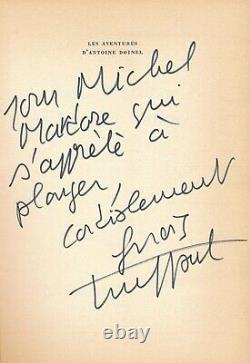 LES AVENTURES
D'ANTOINE DOINEL
pour Michel
Mardore qui
s'apprête à
plonger,
cordialement
françois
truffaut
© ebaysto